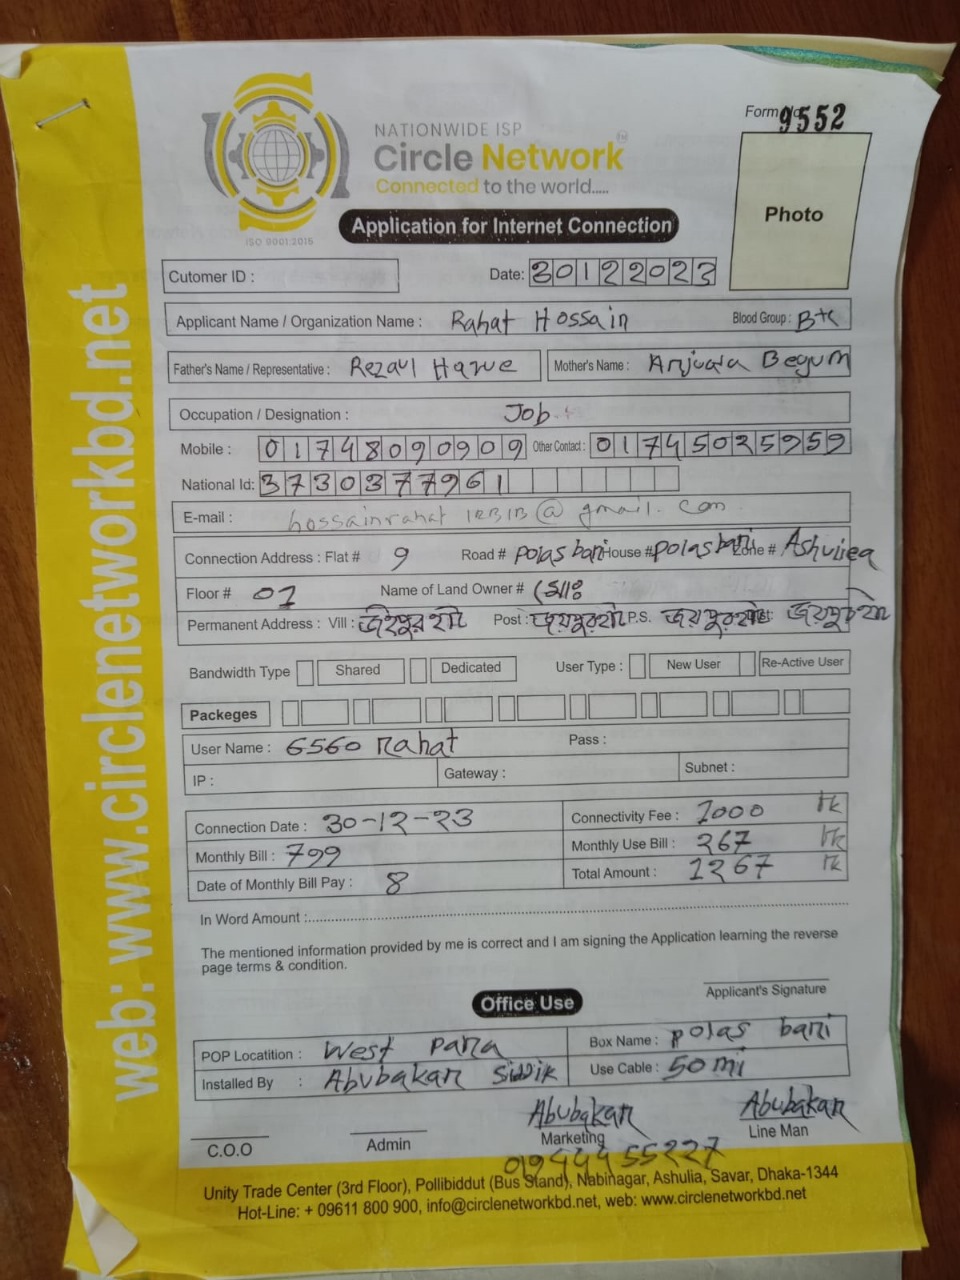 Form No 9552
NATIONWIDE ISP
Circle Network
Connected to the world.....
ISO 9001:2015
Application for Internet Connection
Photo
Cutomer ID :
Date: 30122023
Applicant Name / Organization Name : Rahat Hossain Blood Group : B+
Father's Name / Representative : Rezaul Haque Mother's Name : Begum
Occupation / Designation : Job
Mobile : 01748090909 Other Contact : 01745025959
National Id: 3730377961
E-mail : @gmail.com
Connection Address : Flat # 9 Road # polas bari House # polas bari Zone # Ashuliea
Floor # 01 Name of Land Owner #
Permanent Address : Vill : Post : জয়পুরহাট P.S. জয়পুরহাট জয়পুরহাট
Bandwidth Type Shared Dedicated User Type : New User Re-Active User
Packeges
User Name : 6560 Rahat Pass :
IP : Gateway : Subnet :
Connection Date : 30-12-23 Connectivity Fee : 1000 tk
Monthly Bill : 799 Monthly Use Bill : 267 tk
Date of Monthly Bill Pay : 8 Total Amount : 1267 tk
In Word Amount :
The mentioned information provided by me is correct and I am signing the Application learning the reverse
page terms & condition.
Applicant's Signature
Office Use
POP Locatition : West Para Box Name : polas bari
Installed By : Abubakar Siddik Use Cable : 50 mi
Abubakar Abubakar
C.O.O Admin Marketing Line Man
01944455227
Unity Trade Center (3rd Floor), Pollibiddut (Bus Stand), Nabinagar, Ashulia, Savar, Dhaka-1344
Hot-Line: + 09611 800 900, info@circlenetworkbd.net, web: www.circlenetworkbd.net
web: www.circlenetworkbd.net